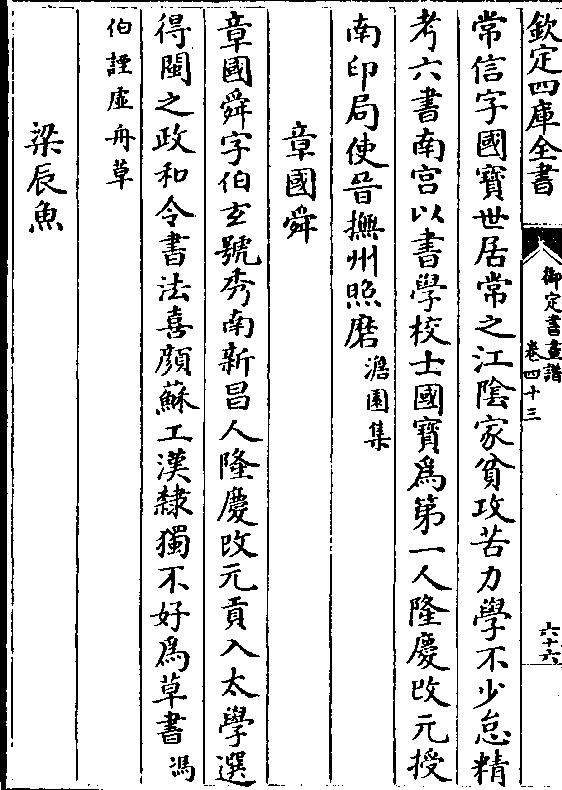 欽定四庫全書
御定書畫譜
卷四十三
六十六
常信字國寶世居常之江陰家貧攻苦力學不少怠精
考六書南宫以書學校士國寶爲第一人隆慶改元授
南印局使晉撫州照磨澹園集
章國舜
章國舜字伯玄號秀南新昌人隆慶改元貢入太學選
得閩之政和令書法喜顔蘇工漢隸獨不好爲草書馮
伯諲虚舟草
梁辰魚